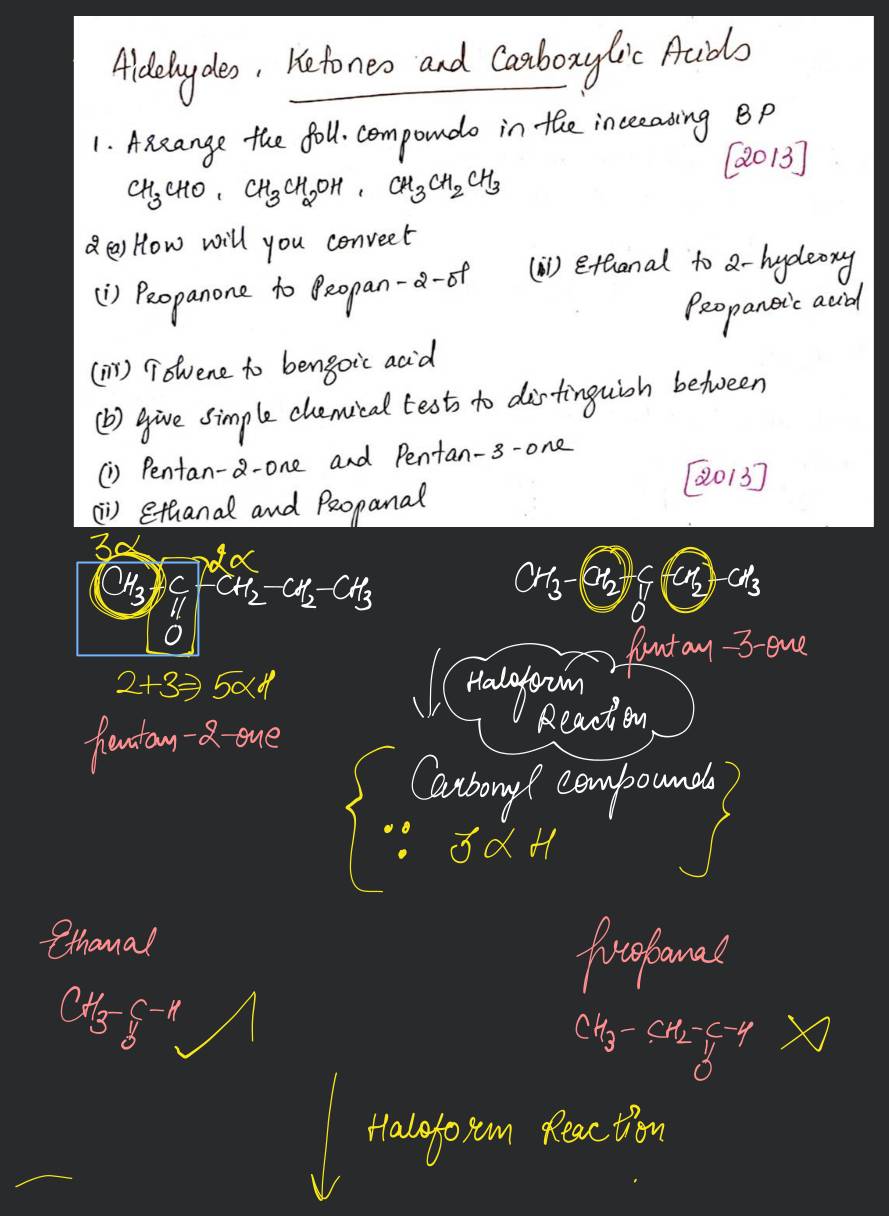 Aldehydes, Ketones and Carboxylic Acids
1. Arrange the foll. compounds in the increasing BP
[2013]
CH3CHO, CH3CH2OH, CH3CH2CH3
2(a) How will you convert
(i) Propanone to Propan-2-ol
(ii) Ethanal to 2-hydroxy
Propanoic acid
(iii) Toluene to benzoic acid
(b) Give simple chemical tests to distinguish between
(i) Pentan-2-one and Pentan-3-one
[2013]
(ii) Ethanal and Propanal
3α 2α
CH3-C-CH2-CH2-CH3
||
O
CH3-CH2-C-CH2-CH3
||
O
2+3⇒5αH
pentan-2-one
pentan-3-one
Haloform
Reaction
Carbonyl compounds
∵ 3αH
Ethanal
CH3-C-H
||
O
propanal
CH3-CH2-C-H
||
O
Haloform Reaction